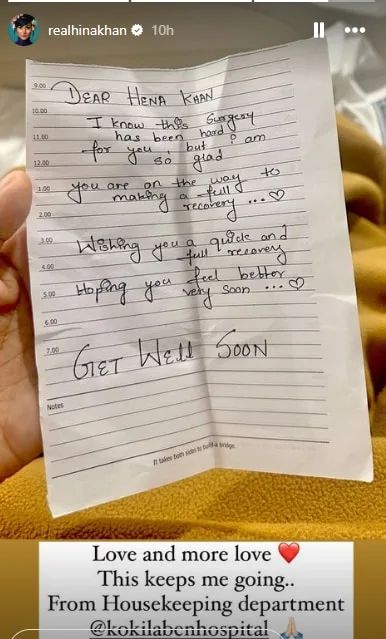 realhinakhan 10h
9.00
DEAR HENA KHAN
10.00
I know this surgery
11.00
has been hard
for you, but I am
12.00
so glad
1.00
you are on the way to
making a full
recovery ... ♡
2.00
3.00
Wishing you a quick and
full recovery
4.00
Hoping you feel better
5.00
very soon ... ♡
6.00
7.00
GET WEll SOON
Notes
It takes both sides to build a bridge.
Love and more love ❤️
This keeps me going..
From Housekeeping department
@kokilabenhospital 🙏🏻